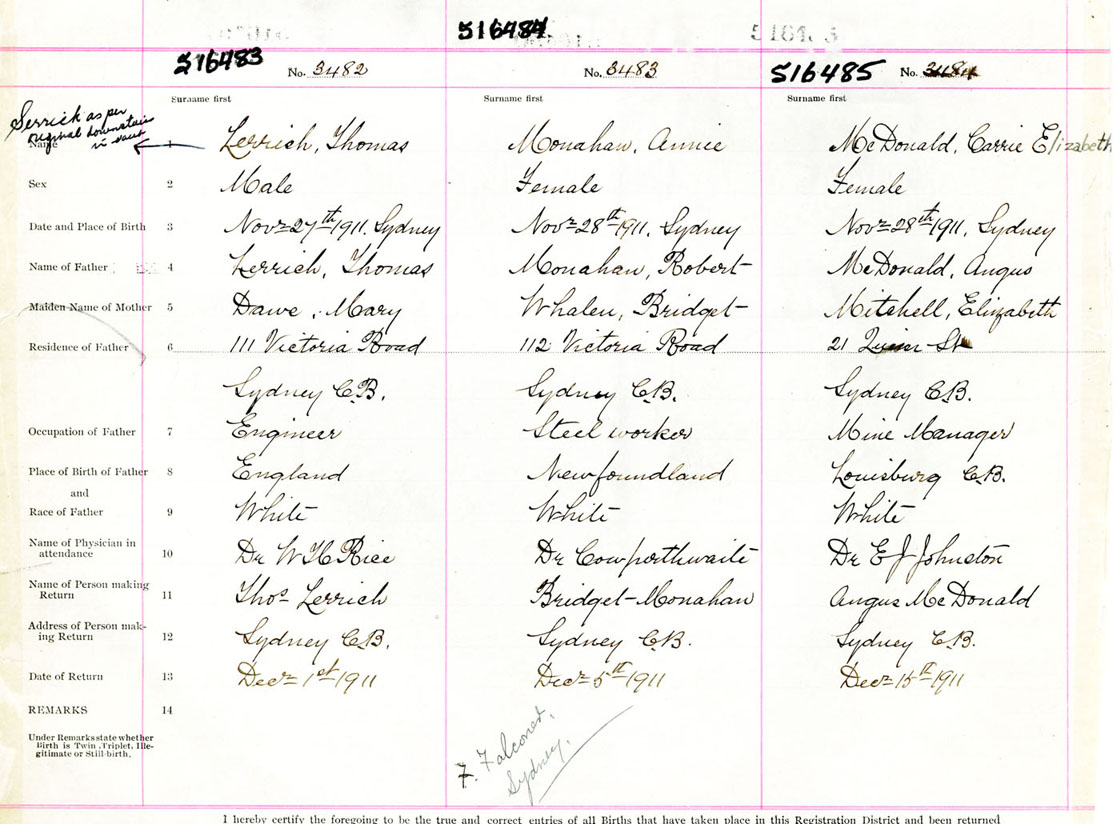 516483
516484
516485
No. 3482
No. 3483
No.
Surname first
Surname first
Surname first
Serrick as per
original downstairs
in vault
Name 1 Lerrich, Thomas Monahan, Annie McDonald, Carrie Elizabeth
Sex 2 Male Female Female
Date and Place of Birth 3 Novr 27th 1911. Sydney Novr 28th 1911. Sydney Novr 28th 1911, Sydney
Name of Father 4 Lerrich, Thomas Monahan, Robert McDonald, Angus
Maiden Name of Mother 5 Dawe, Mary Whalen, Bridget Mitchell, Elizabeth
Residence of Father 6 111 Victoria Road 112 Victoria Road 21 St
Sydney C.B. Sydney C.B. Sydney C.B.
Occupation of Father 7 Engineer Steel worker Mine Manager
Place of Birth of Father 8 England Newfoundland Louisburg C.B.
and
Race of Father 9 White White White
Name of Physician in
attendance 10 Dr W H Rice Dr Cowperthwaite Dr E J Johnston
Name of Person making
Return 11 Thos Lerrich Bridget Monahan Angus McDonald
Address of Person mak-
ing Return 12 Sydney C.B. Sydney C.B. Sydney C.B.
Date of Return 13 Decr 1st 1911 Decr 5th 1911 Decr 15th 1911
REMARKS 14
Under Remarks state whether
Birth is Twin, Triplet, Ille-
gitimate or Still-birth.
F. Falconer.
Sydney.
I hereby certify the foregoing to be the true and correct entries of all Births that have taken place in this Registration District and been returned